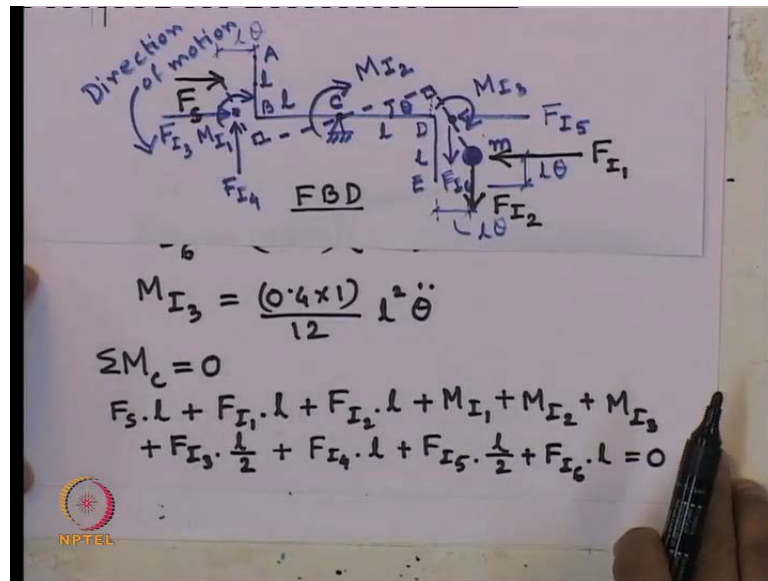 Direction of motion
lθ
A
l
F_S
B
l
C
M_I2
M_I3
F_I3
M_I1
θ
l
D
F_I5
m
F_I1
l
E
F_I6
lθ
F_I4
FBD
F_I2
lθ
M_I3 = (0.4×1)/12 l² θ̈
ΣM_c = 0
F_S.l + F_I1.l + F_I2.l + M_I1 + M_I2 + M_I3
+ F_I3.l/2 + F_I4.l + F_I5.l/2 + F_I6.l = 0
NPTEL